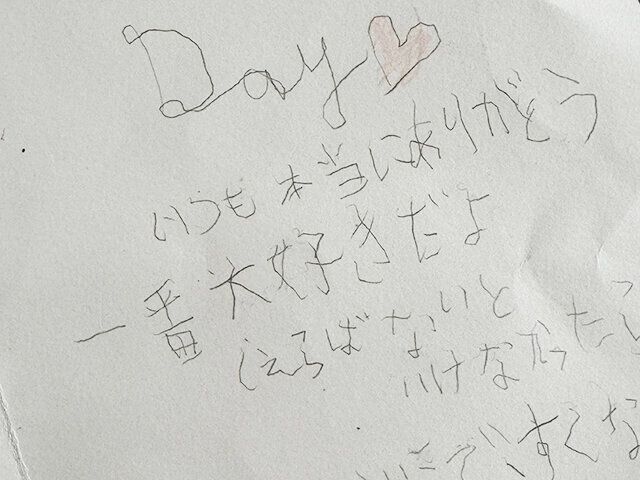 Day
いつも本当にありがとう
一番大好きだよ
えらばないと
いけなかったら